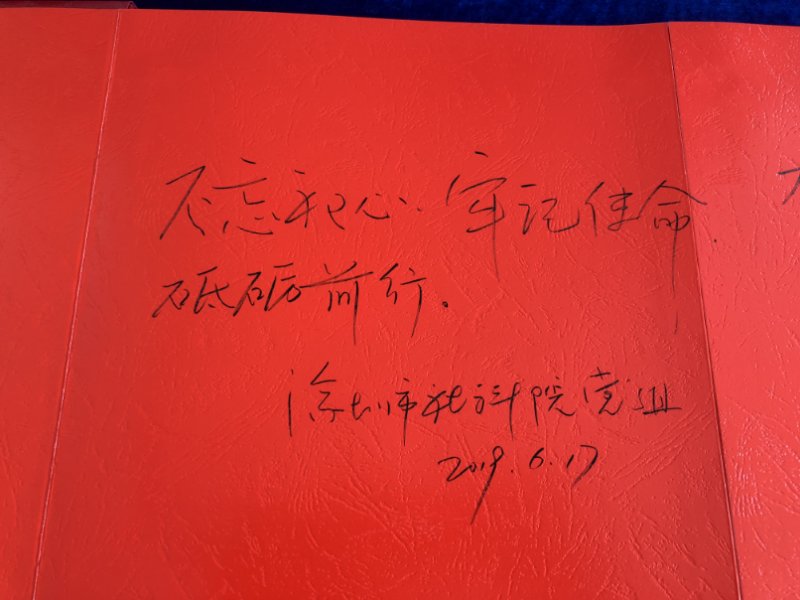 不忘初心、牢记使命、
砥砺前行。
深圳市社科院党组
2019.6.17